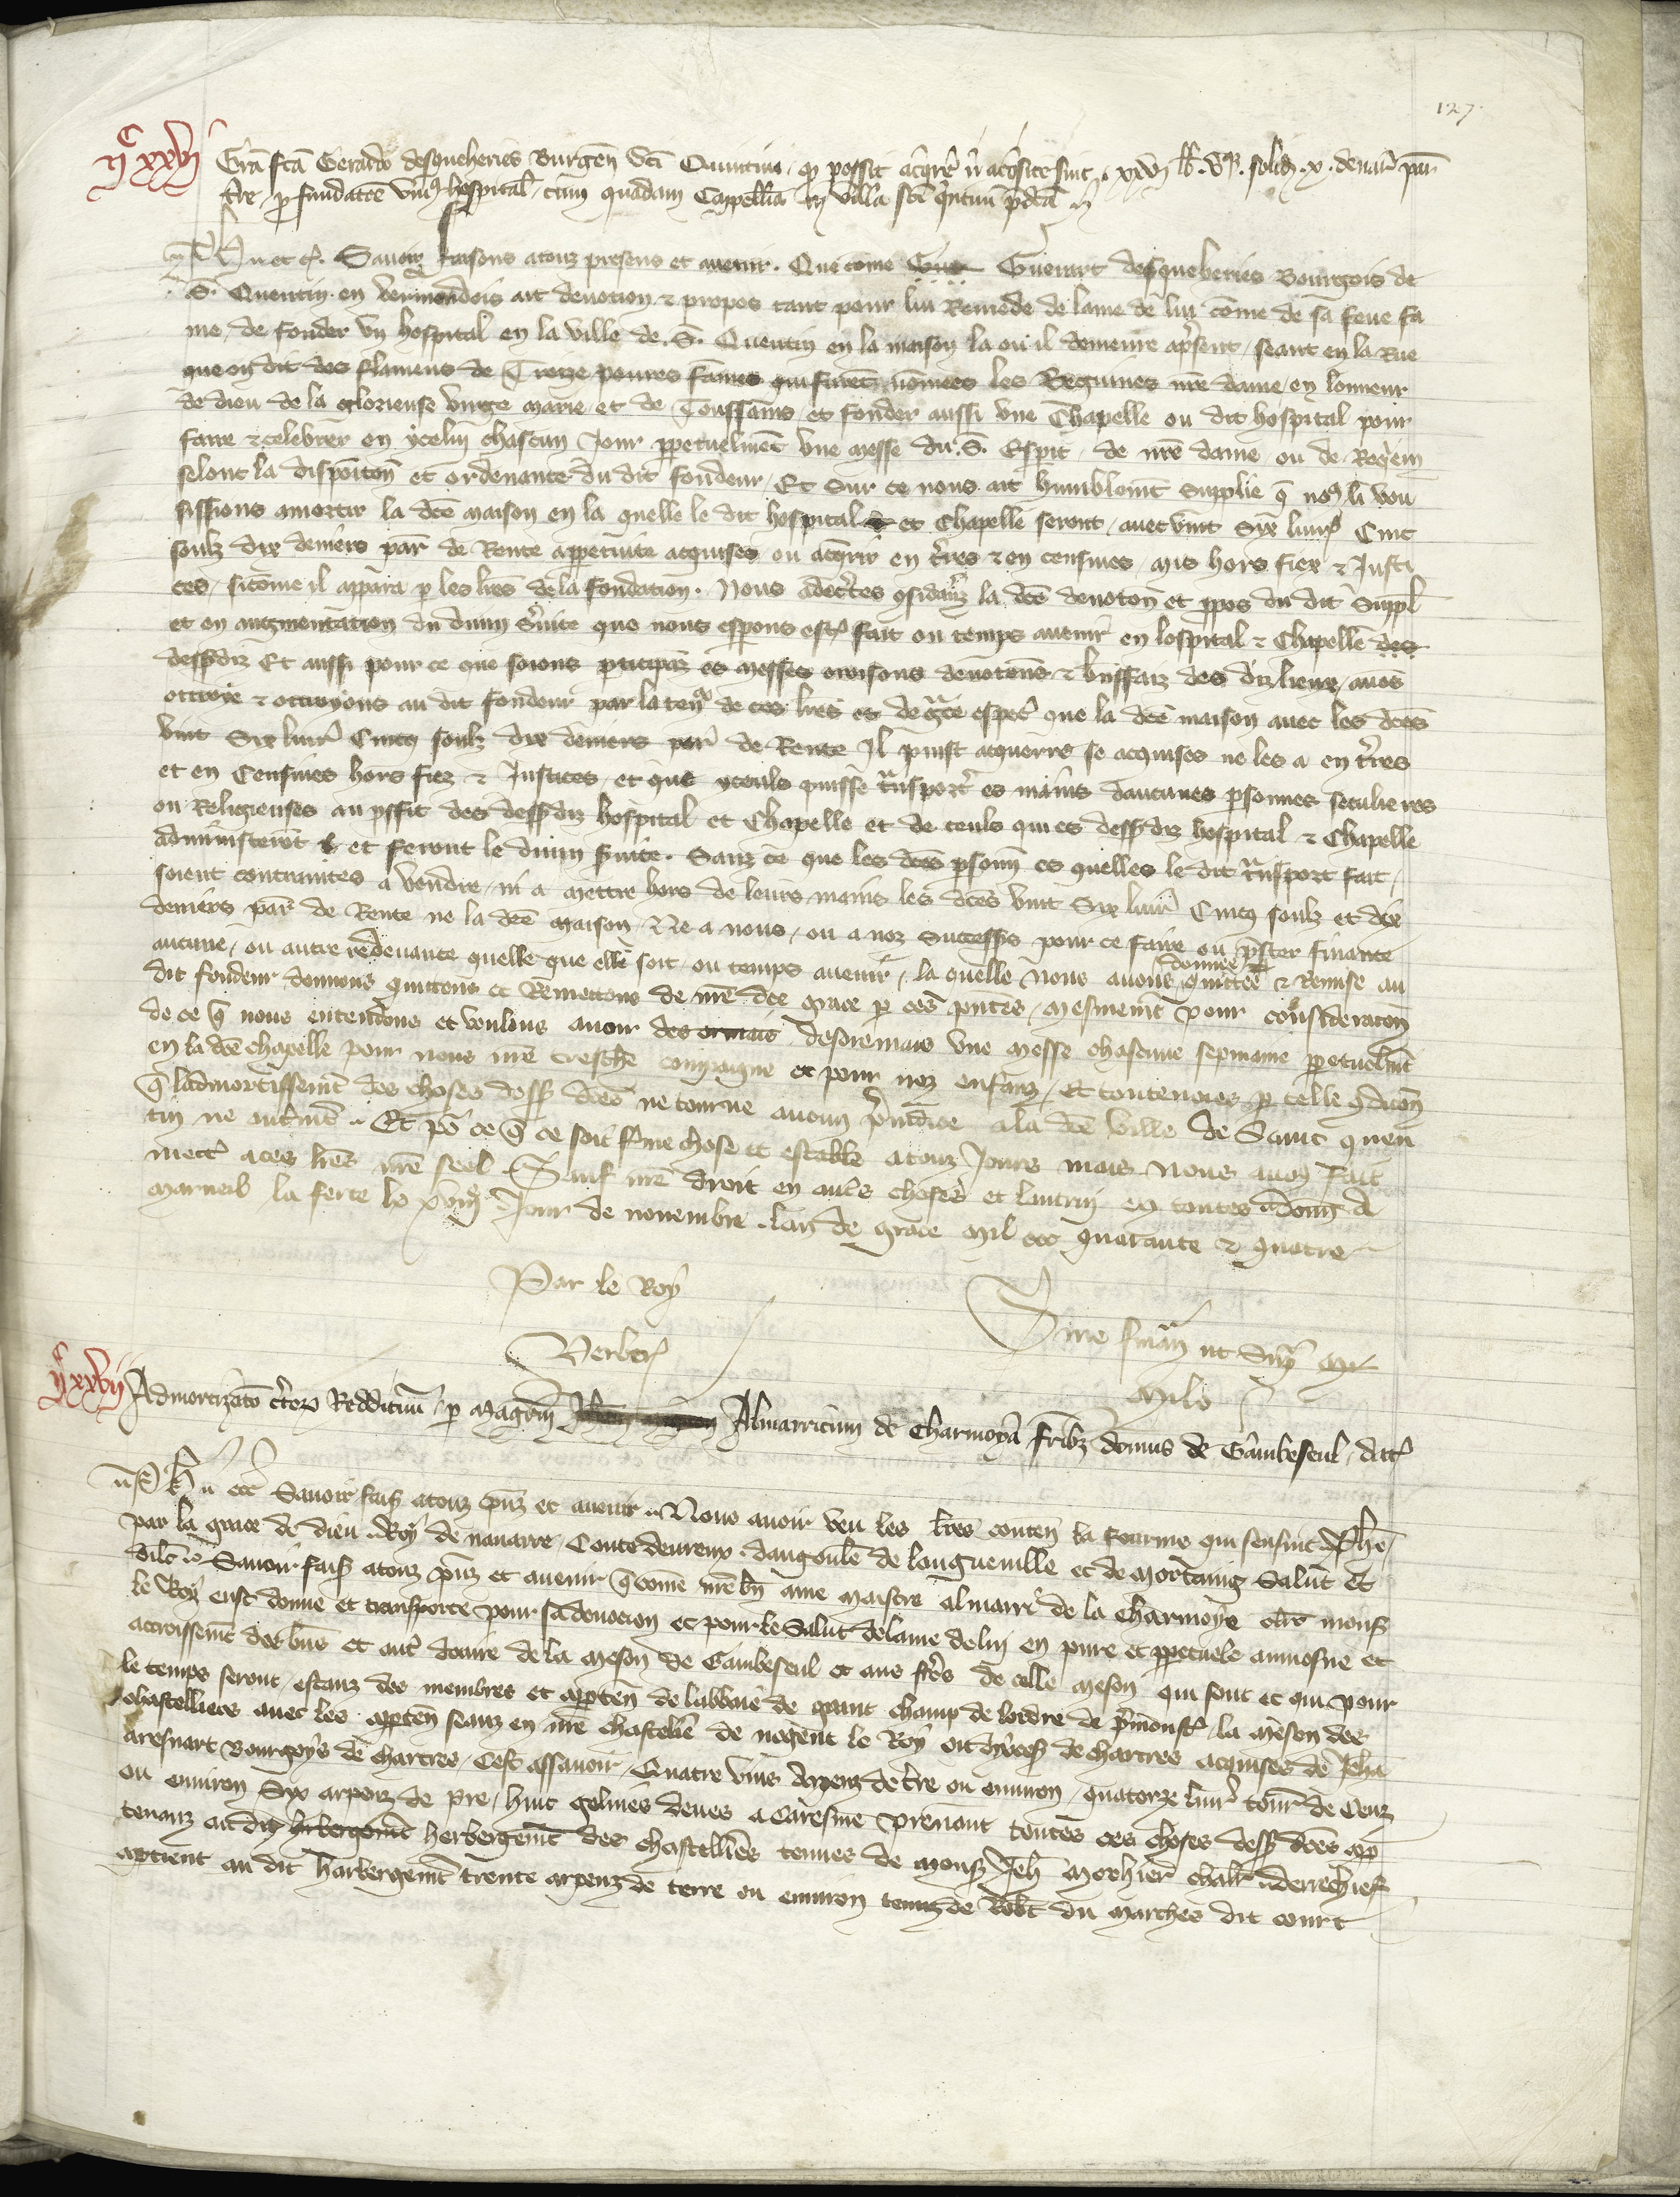 127.
ijᶜ xxvj Gra͞ fc͞a Gerardo desqueheries Burgen͞ Sci͞ Quintini, qͥ possit acq͛re͛ n͛ acq͛site sint . xxvj lb͛. vq3. solid͛ . x. denar͛ par͛
t͛re, p fundatōe uni9 hospital͛, cum quadam Capell͞ia in villa sc͞i Quintini p͛dc͞a
Ph͛ etc͛. Savoir faisons a touz presens et avenir. Que co͞me Gue Guerart desqueheries Bourgois de
S. Quentin en vermendois ait devotion & propos tant pour lui Remede de lame de lui co͞me de sa feue fa
me, de fonder un hospital en la ville de .S. Quentin en la maison la ou il demeure ap͛sent, seant en la Rue
que on dit des flamens de Treize povres fames qui seront no͞mees les Beguines nr͞e dame, en lonneur
de dieu de la glorieuse virge marie et de Toussains, et fonder aussi une Chapelle ou dit hospital pour
faire & celebrer en ycelui chascun Jour p̱petuelme͞t une messe du .S. Espit͛, de nr͞e dame ou de Req͛em
selont la dispoiton͞ et ordenance du dit fondeur, Et sur ce nous ait humblem͞t supplie q͞ no9 li vou
sissions amortir la dc͞e maison en la quelle le dit hospital et Chapelle seront, avec vint Syx livr͛ Cinc
soulz dix deniers par͛ de Rente a p̱petuite acquises ou acq͛rir en t͛res & en censives, mis hors fiez & Justi
ces, si co͞me il app̱ara p̱ les lr͞es de la fondation. Nous adec͛tes 9sid͛anz la dc͞e devoton͞ et p̱pos du dit suppl͞
et en augmentation du divin s͛vice que nous esperons est͛ fait ou temps avenir en lospital & Chapelle des
dessusdiz Et aussi pour ce que soions p̱ticipanz es messes oroisons devotions & bn͞ffaiz des diz lieux, avo͞s
ottroye & ottroyons au dit fondeur par la ten9 de ces lr͞es et de gr͞ce espec͛ que la dc͞e maison avec les dc͞es
vint Six livr͛ Cinq soulz dix deniers par͛ de Rente Il puist acquerre se acquises ne les a en t͛res
et en Censives hors fiez & Justices, et que yceuls puisse t͛nsport͛ es mains daucunes p̱sonnes seculieres
ou Religieuses au p̱ffit des dessusdiz hospital et Chapelle et de ceuls qui es dessusdiz hospital & Chapelle
administeront et feront le divin s͛vice. Sanz ce que les dc͞es p̱son͞n es quelles le dit t͛nsport fait,
soient contraintes a vendre, ni a mettre hors de leurs mains les dc͞es vint Six livr͛ Cinq soulz et dix
deniers par͛ de Rente ne la dc͞e maison, Ne a nous, ou a noz successors pour ce faire ou p̱ster finance
aucune, ou autre redevance quelle que elle soit, ou temps avenir, la quelle nous avons donnee quittee & Remise au
dit fondeur donnons quittons et Remettons de nr͞e dc͞e grace p̱ ces p͞ntes, mesmeme͞t pour consideraton͞
de ce q͞ nous entendons et voulons avoir des ormais desoremais une messe chascune sepmaine p̱petuelme͞t
en la dc͞e chapelle pour nous nr͞e tresch͞e compaigne et pour noz enfanz, Et toutevoies p̱ telle 9diton͞
q͞ ladmortissem͞t des choses dess9 dc͞es ne tourne aucun p͛iudice a la dc͞e ville de Saint quen
tin ne autreme͞t. Et po͛ ce q͞ ce soit ferme chose et estable a touz Jours mais Nous avo͞s fait
mett͛ a ces lr͞es nr͞e seel. Sauf nr͞e droit en aut͛s choses et lautrui en toutes. Donn͞ A
Marueil la ferte le xviij͛ Jour de novembre lan de grace Mil ccc quarante & quatre
Par le Roy
Verber͛
Sine fina͞n ut sup͛
Milo
ijᶜ xxvij Admortizat͞o c͛tor͛ Reddituu͞, p̱ magr͞m Almarricum de Charmoya fr͞ib3 domus de Gambeseul, dat͛
Ph͛ etc͛ Savoir fais9 a touz p͞nz et avenir. Nous avoir veu les lr͞es conten͞ la fourme qui sensuit. Ph͞e
par la grace de dieu Roy de navarre, Conte devreux, dangoule͞ de longueville et de mort͛aing Salut Et
dilc͞o͞n Savoir fais9 a touz p͞nz et avenir q͞ co͞me nr͞e bn͞ ame maistre Almarri de la Charmoye cl͛c mons9
le Roy eust donne et transporte pour sa devocion et pour le Salut de lame de lui en pure et p̱petuele aumosne et
accroissem͞t des bn͞s et aut͛ de la meson de Gambeseul et aus fr͛es de celle meson qui sont et qui pour
le temps seront, estanz des membres et app̱ten͞ de labbaie de grant champ de lordre de P͛monst͛, la meson des
chastelliers avec les app̱ten͞ seanz en nr͞e chastelie͞ de nogent le Roy ou dyoces9 de Chartres acquises de Jeha͞
Aresnart Bourgoys de chartres, Cest assavoir, Quatre vins arpenz de t͛re ou environ, quatorze livr͛ tourn͞ de Cenz
ou environ Syx arpenz de pre, huit gelines deues a Caresme prenant toutes ces choses dess9 dc͞es app̱
tenanz au dit herbergem͞t herbergem͞t des chastelliers tenues de mons9 Jeh͞ Morhier chl͞r. derrechief
ap̱tient au dit harbergem͞t trente arpenz de terre ou environ tenuz de Rob͞t du marches dit court